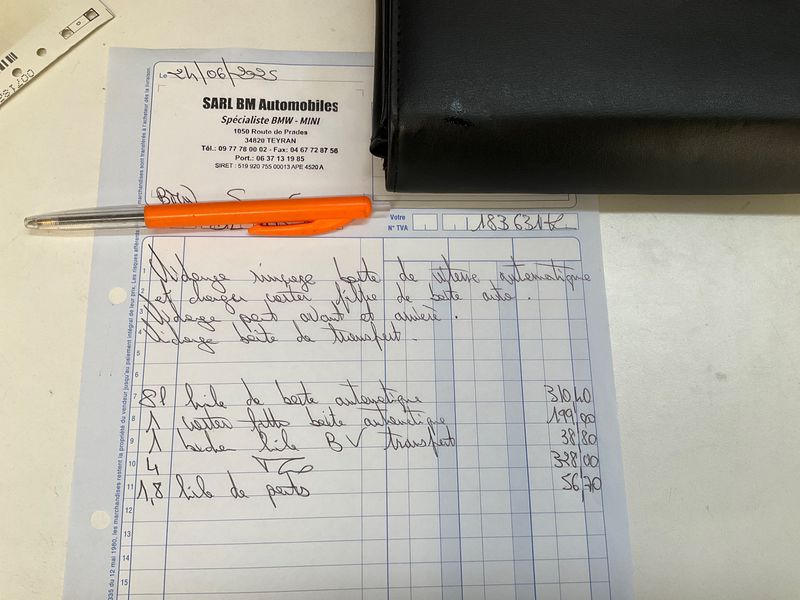 Le 24/06/2025
SARL BM Automobiles
Spécialiste BMW - MINI
1050 Route de Prades
34820 TEYRAN
Tél.: 09 77 78 00 02 - Fax: 04 67 72 87 56
Port.: 06 37 13 19 85
SIRET : 519 920 755 00013 APE 4520 A
BMW
Votre
N° TVA
183631
1 Vidange rinçage boite de vitesse automatique
2 et changer carter filtre de boite auto.
3 Vidange pont avant et arrière.
4 Vidange boite de transfert.
5
6
7 8l huile de boite automatique 310,40
8 1 carter filtre boite automatique 199,00
9 1 bidon huile BV transfert 38,80
10 4 328,00
11 1,8 huile de ponts 56,70
12
13
14
15
335 du 12 mai 1980, les marchandises restent la propriété du vendeur jusqu'au paiement intégral de leur prix. Les risques afférents marchandises sont transférés à l'acheteur dès la livraison.